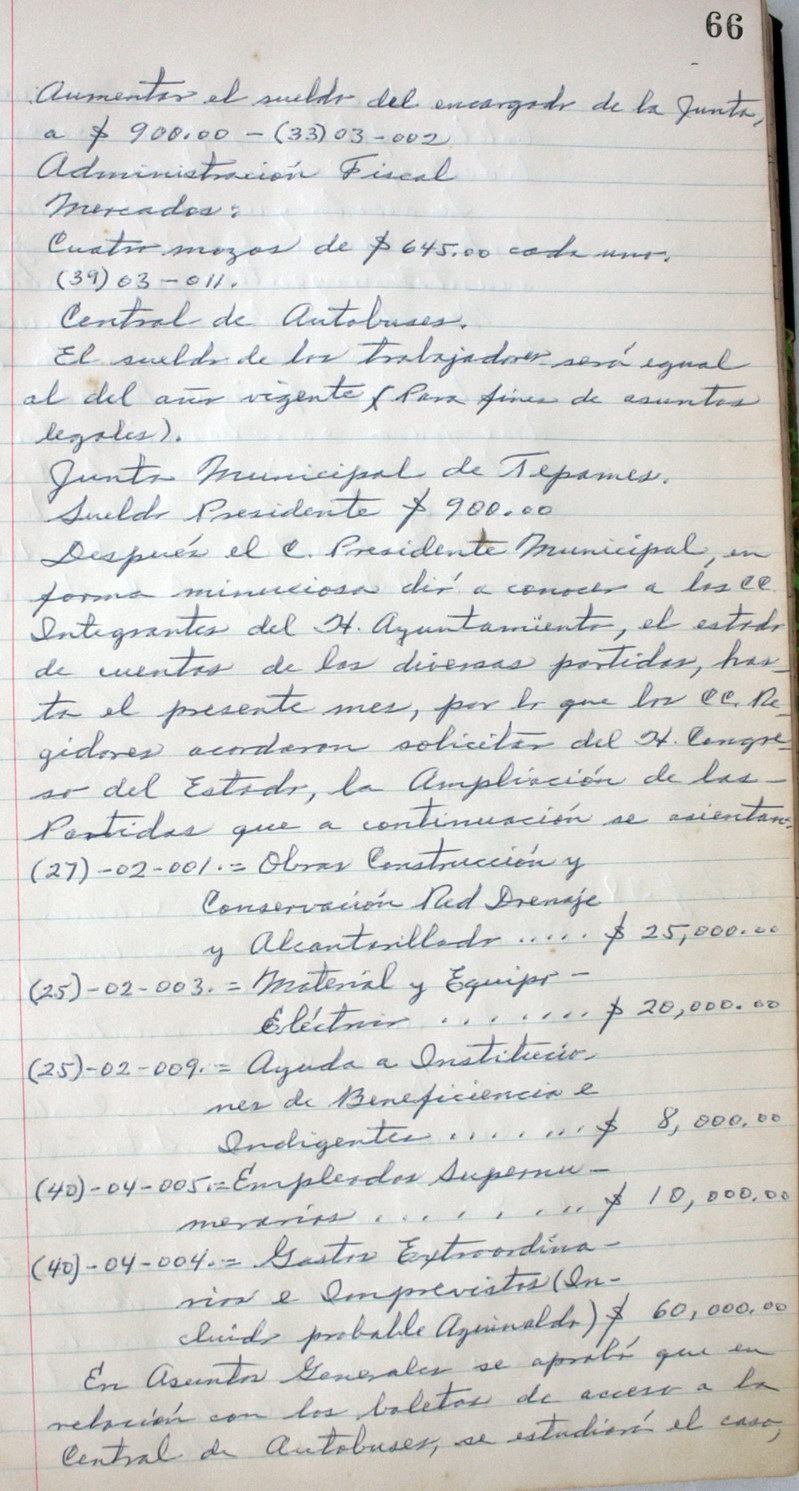 66
Aumentar el sueldo del encargado de la Junta,
a $ 900.00 - (33) 03 - 002
Administración Fiscal
Mercados:
Cuatro mozos de $ 645.00 cada uno.
(39) 03 - 011.
Central de Autobuses.
El sueldo de los trabajadores será igual
al del año vigente (Para fines de asuntos
legales).
Junta Municipal de Tepames.
Sueldo Presidente $ 900.00
Después el C. Presidente Municipal, en
forma minuciosa dió a conocer a los CC.
Integrantes del H. Ayuntamiento, el estado
de cuentas de las diversas partidas, has-
ta el presente mes, por lo que los CC. Re-
gidores acordaron solicitar del H. Congre-
so del Estado, la Ampliación de las -
Partidas que a continuación se asientan:
(27)-02-001. = Obras Construcción y
Conservación Red Drenaje
y Alcantarillado ..... $ 25,000.00
(25)-02-003. = Material y Equipo -
Eléctrico ....... $ 20,000.00
(25)-02-009. = Ayuda a Institucio-
nes de Beneficiencia e
Indigentes ....... $ 8,000.00
(40)-04-005. = Empleados Supernu-
merarios ....... $ 10,000.00
(40)-04-004. = Gastos Extraordina-
rios e Imprevistos (In-
cluido probable Aguinaldo) $ 60,000.00
En Asuntos Generales se aprobó que en
relación con los boletos de acceso a la
Central de Autobuses, se estudiará el caso,